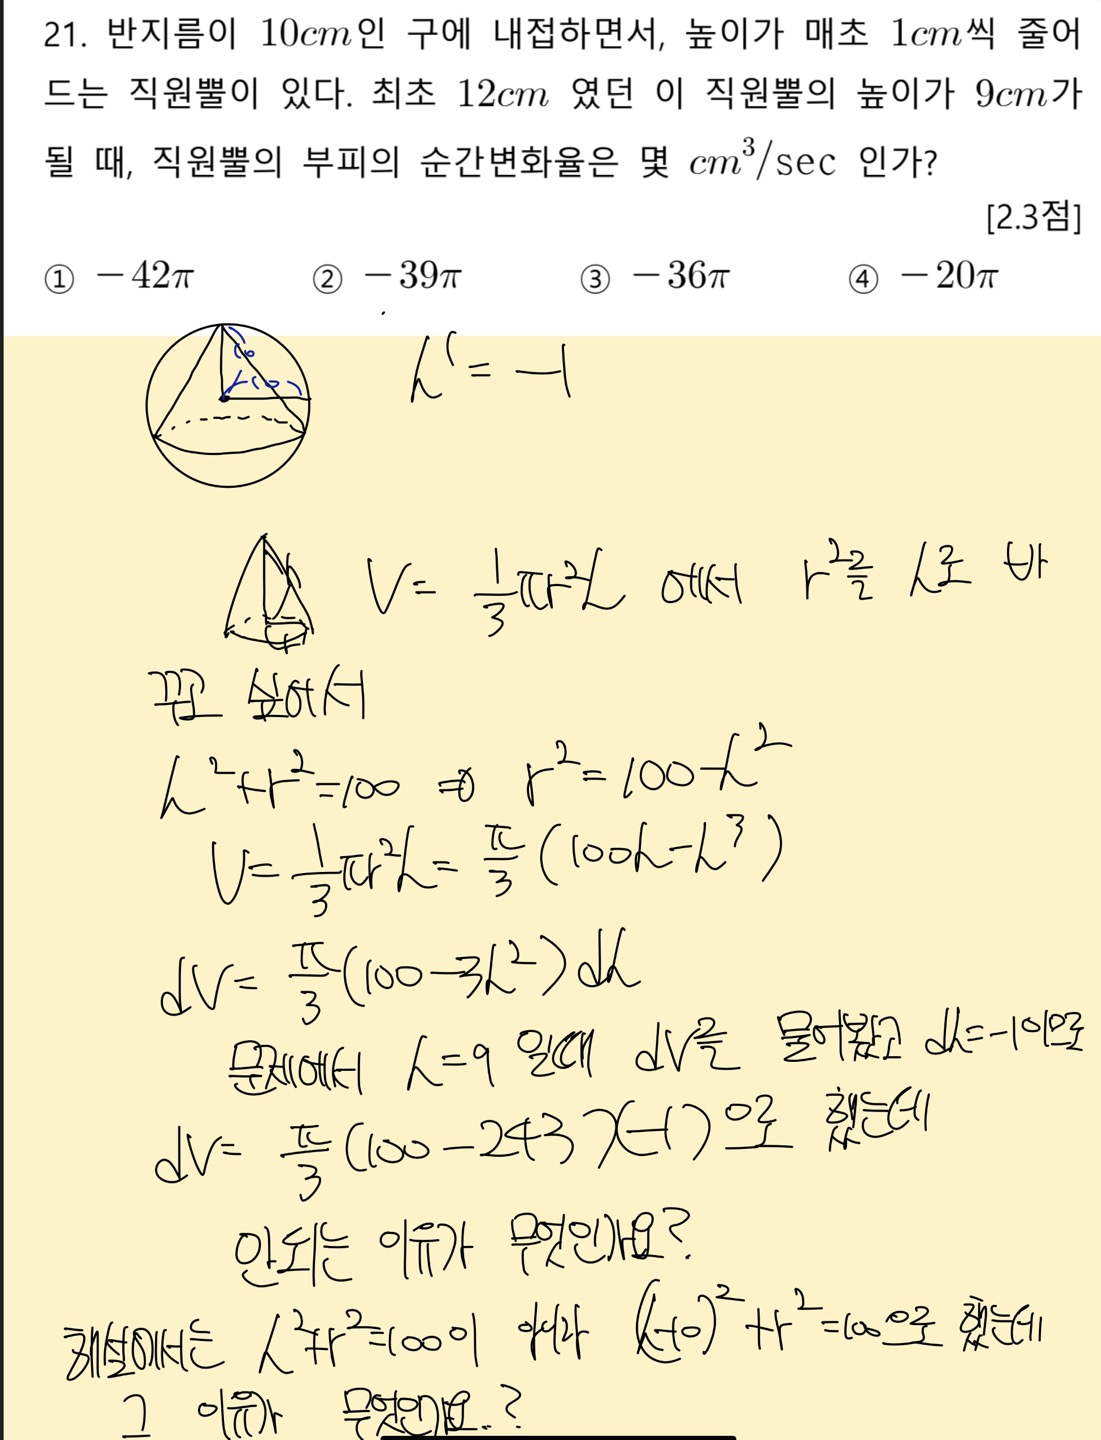 21. 반지름이 10cm인 구에 내접하면서, 높이가 매초 1cm씩 줄어
드는 직원뿔이 있다. 최초 12cm 였던 이 직원뿔의 높이가 9cm가
될 때, 직원뿔의 부피의 순간변화율은 몇 cm³/sec 인가?
[2.3점]
① −42π ② −39π ③ −36π ④ −20π
10
10
h' = −1
h
r
V = 1/3 πr²h 에서 r²를 h로 바
꾸고 싶어서
h²+r²=100 ⇒ r²=100−h²
V = 1/3 πr²h = π/3 (100h−h³)
dV = π/3 (100−3h²) dh
문제에서 h=9 일때 dV를 물어봤고 dh=−1이므로
dV = π/3 (100−243)(−1) 으로 했는데
안되는 이유가 무엇인가요?
해설에서는 h²+r²=100이 아니라 (h−10)²+r²=100으로 했는데
그 이유가 무엇인가요..?